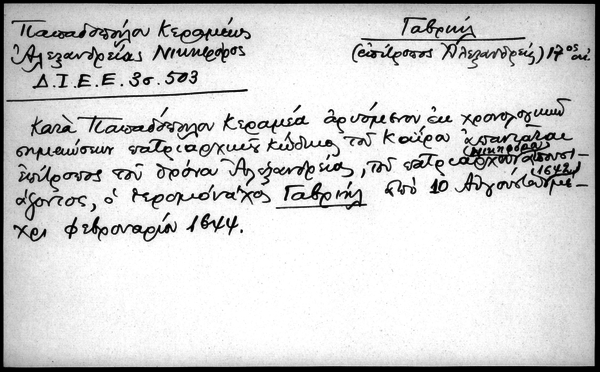 Παπαδοπούλου Κεραμέως
Ἀλεξανδρείας Νικηφόρος
Δ.Ι.Ε.Ε. 3σ. 503
Γαβριήλ
(ἐπίτροπος Ἀλεξανδρείας) 17ος αἰ.
Κατὰ Παπαδόπουλον Κεραμέα ἀρυόμενον ἐκ χρονολογικῶν
σημειώσεων πατριαρχικοῦ κώδικος τοῦ Καΐρου ἀπαντᾶται
ἐπίτροπος τοῦ θρόνου Ἀλεξανδρείας, τοῦ πατριάρχου Νικηφόρου ἀπουσι-
άζοντος, ὁ ἱερομόναχος Γαβριήλ ἀπὸ 10 Αὐγούστου (1643) μέ-
χρι Φεβρουαρίου 1644.